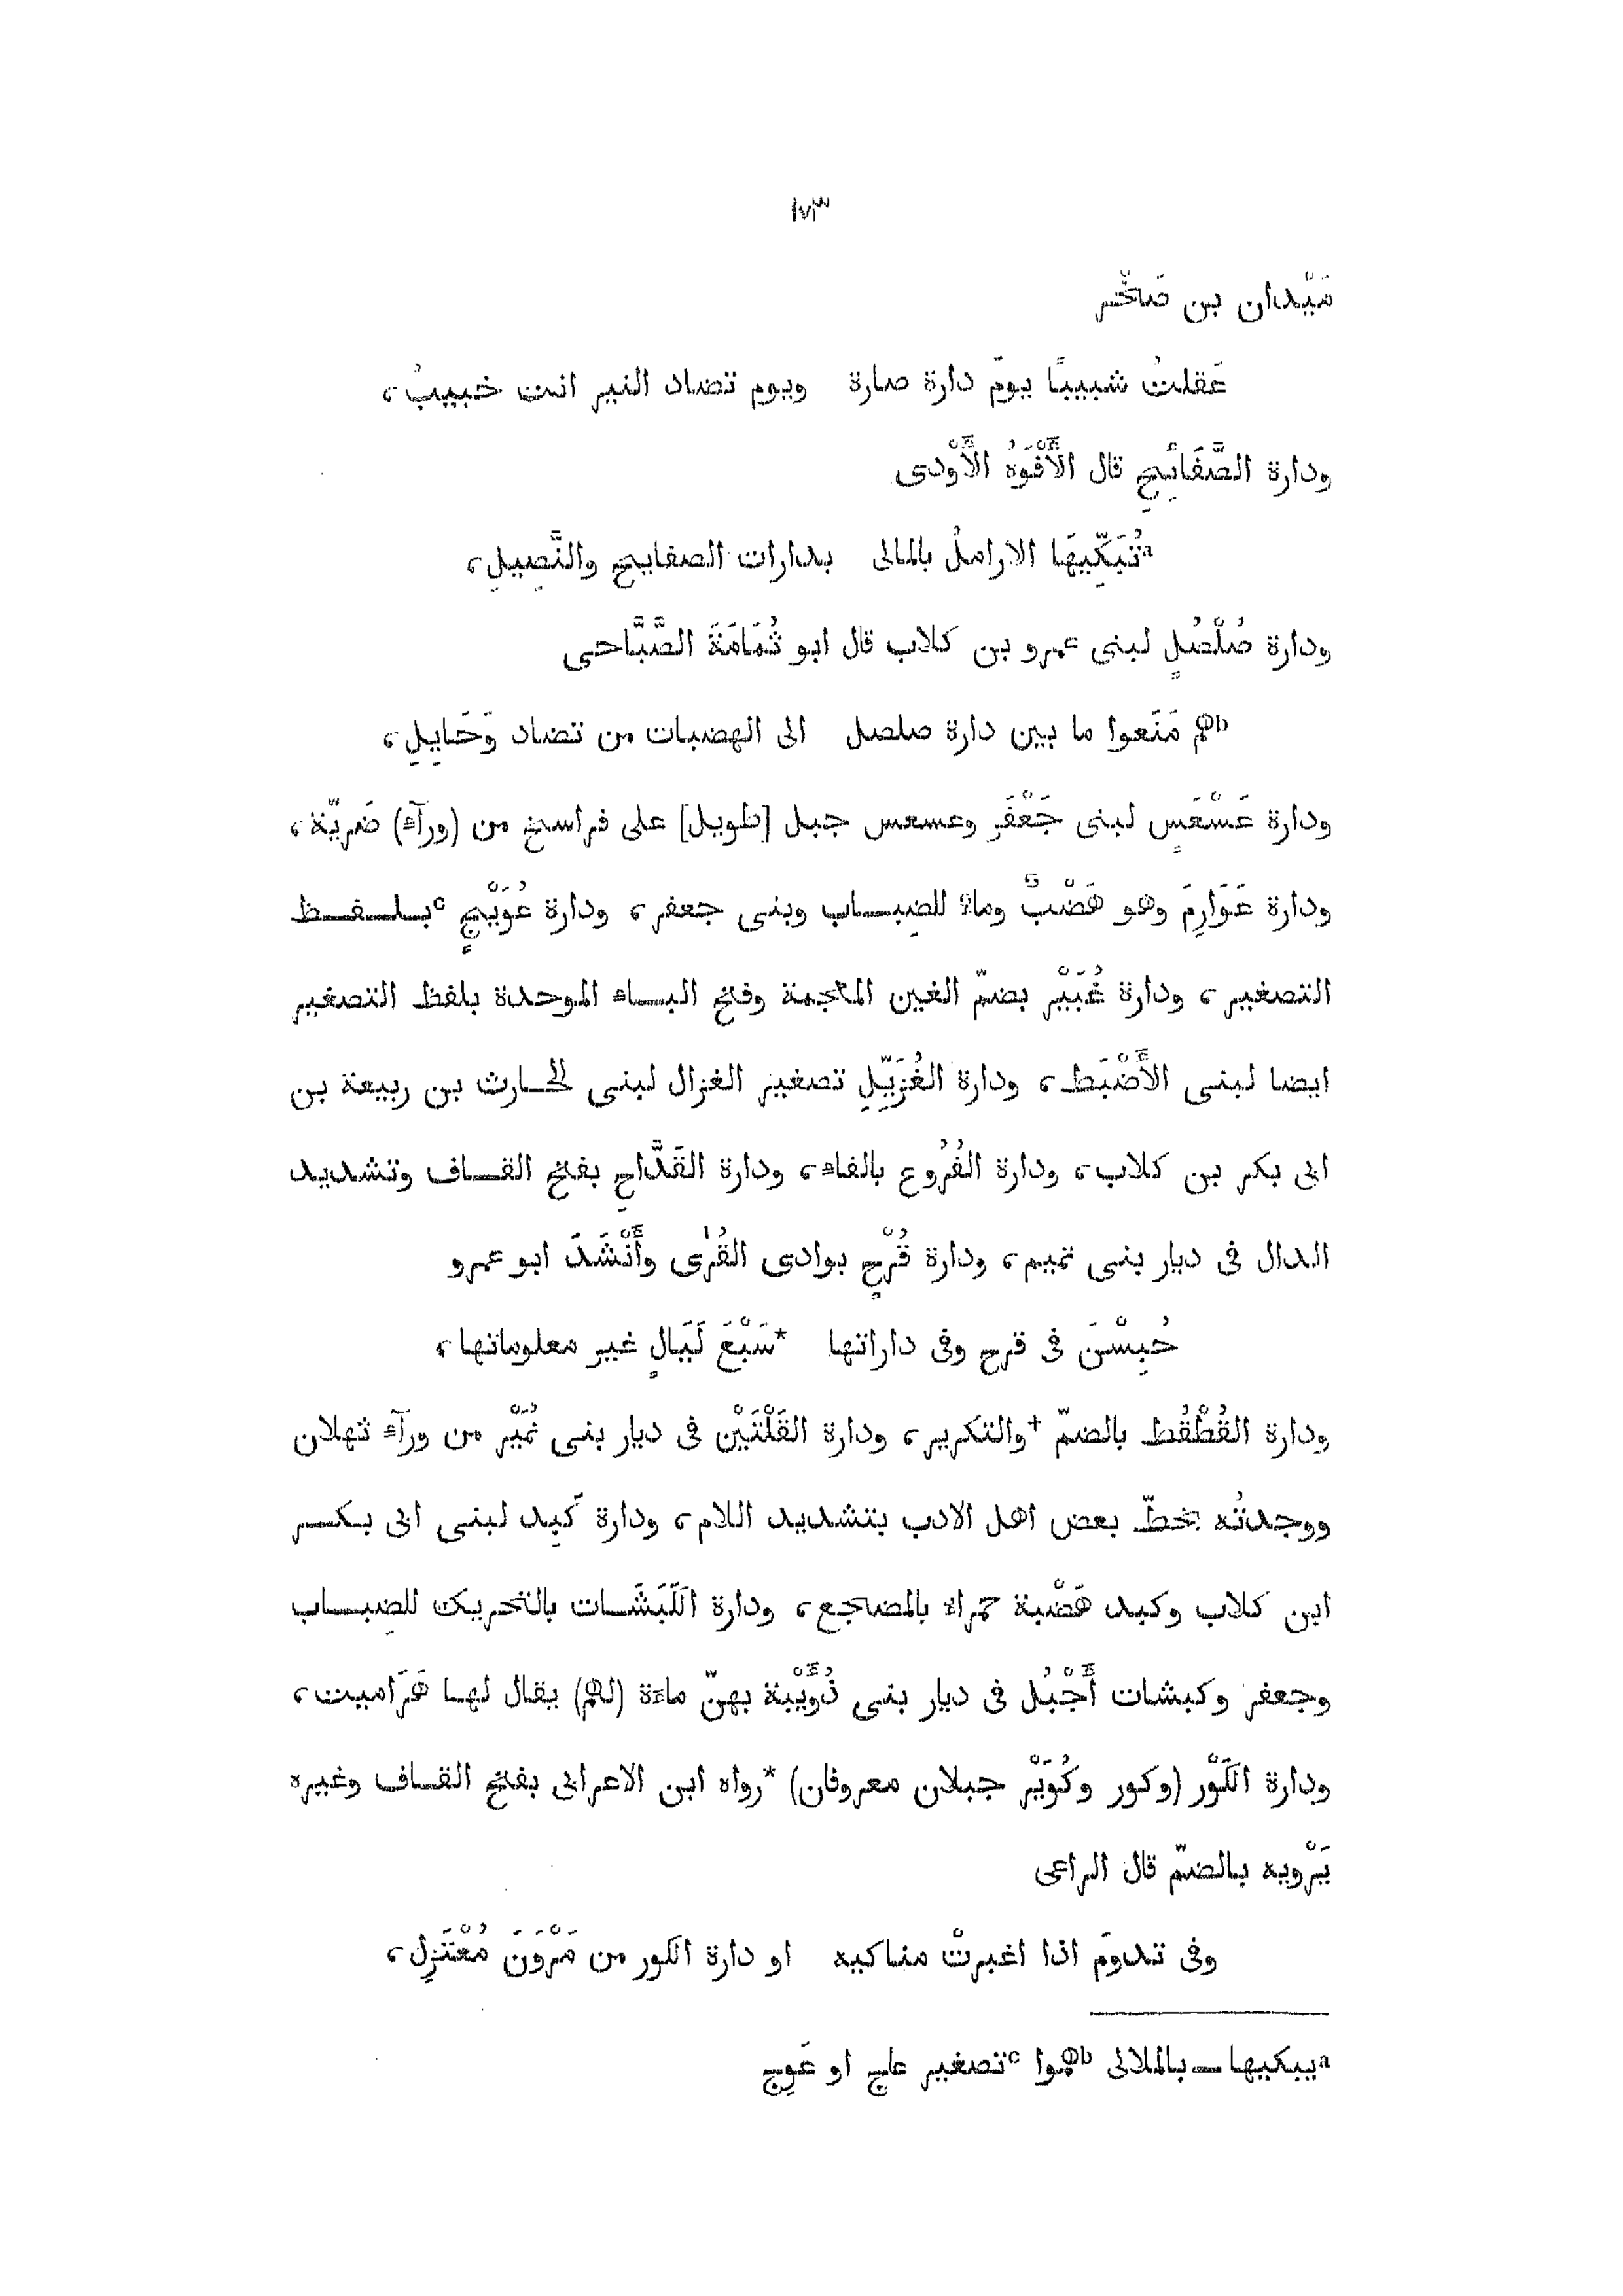 ١٧٣
مَيْدان بن صَخْر
عَقلتُ شبيبًا يومَ دارة صارة ويوم نضاد النير انت خبيبُ،
ودارة الصَّفَائِحِ قال الأَفْوَهُ الأَوْدى
ᵃتُبَكِّيهَا الاراملُ بالمالى بدارات الصفايح والنَّصِيلِ،
ودارة صُلْصُلٍ لبنى عمرو بن كلاب قال ابو ثُمَامَةَ الصَّبَّاحى
ᵇهم مَنَعوا ما بين دارة صلصل الى الهضبات من نضاد وَحَايِلِ،
ودارة عَسْعَسٍ لبنى جَعْفَر وعسعس جبل [طويل] على فراسخ من (ورآء) ضَريّة،
ودارة عَوَارِمَ وهو هَضْبٌ وماء للضِباب وبنى جعفر، ودارة عُوَيْجٍ ᶜبلفظ
التصغير، ودارة غُبَيْر بضمّ الغين المعجمة وفتح الباء الموحدة بلفظ التصغير
ايضا لبنى الأَضْبَط، ودارة الغُزَيِّلِ تصغير الغزال لبنى الحارث بن ربيعة بن
ابى بكر بن كلاب، ودارة الفُرُوع بالفاء، ودارة القَدَّاحِ بفتح القاف وتشديد
الدال فى ديار بنى تميم، ودارة قُرْحٍ بوادى القُرٰى وأَنْشَدَ ابو عمرو
حُبِسْنَ فى قرح وفى داراتها *سَبْعَ لَيَالٍ غير معلوماتها،
ودارة القُطْقُط بالضمّ †والتكرير، ودارة القَلْتَيْن فى ديار بنى نُمَيْر من ورآء ثهلان
ووجدتُه بخطّ بعض اهل الادب بتشديد اللام، ودارة كَبِد لبنى ابى بكر
ابن كلاب وكبد هَضْبة حمراء بالمضجع، ودارة الكَبَشَات بالتحريك للضِباب
وجعفر وكبشات أَجْبُل فى ديار بنى ذُوَيْبة بهنّ ماءة (لهم) يقال لها هَرَاميت،
ودارة الكَوْر (وكور وكُوَيْر جبلان معروفان) *رواه ابن الاعرابى بفتح القاف وغيره
يَرْويه بالضمّ قال الراعى
وفى تدومَ اذا اغبرتْ مناكبه او دارة الكور من مَرْوَنَ مُعْتَزِل،
ᵃيبكيها — بالملالى ᵇهموا ᶜتصغير عاج او عَوِج